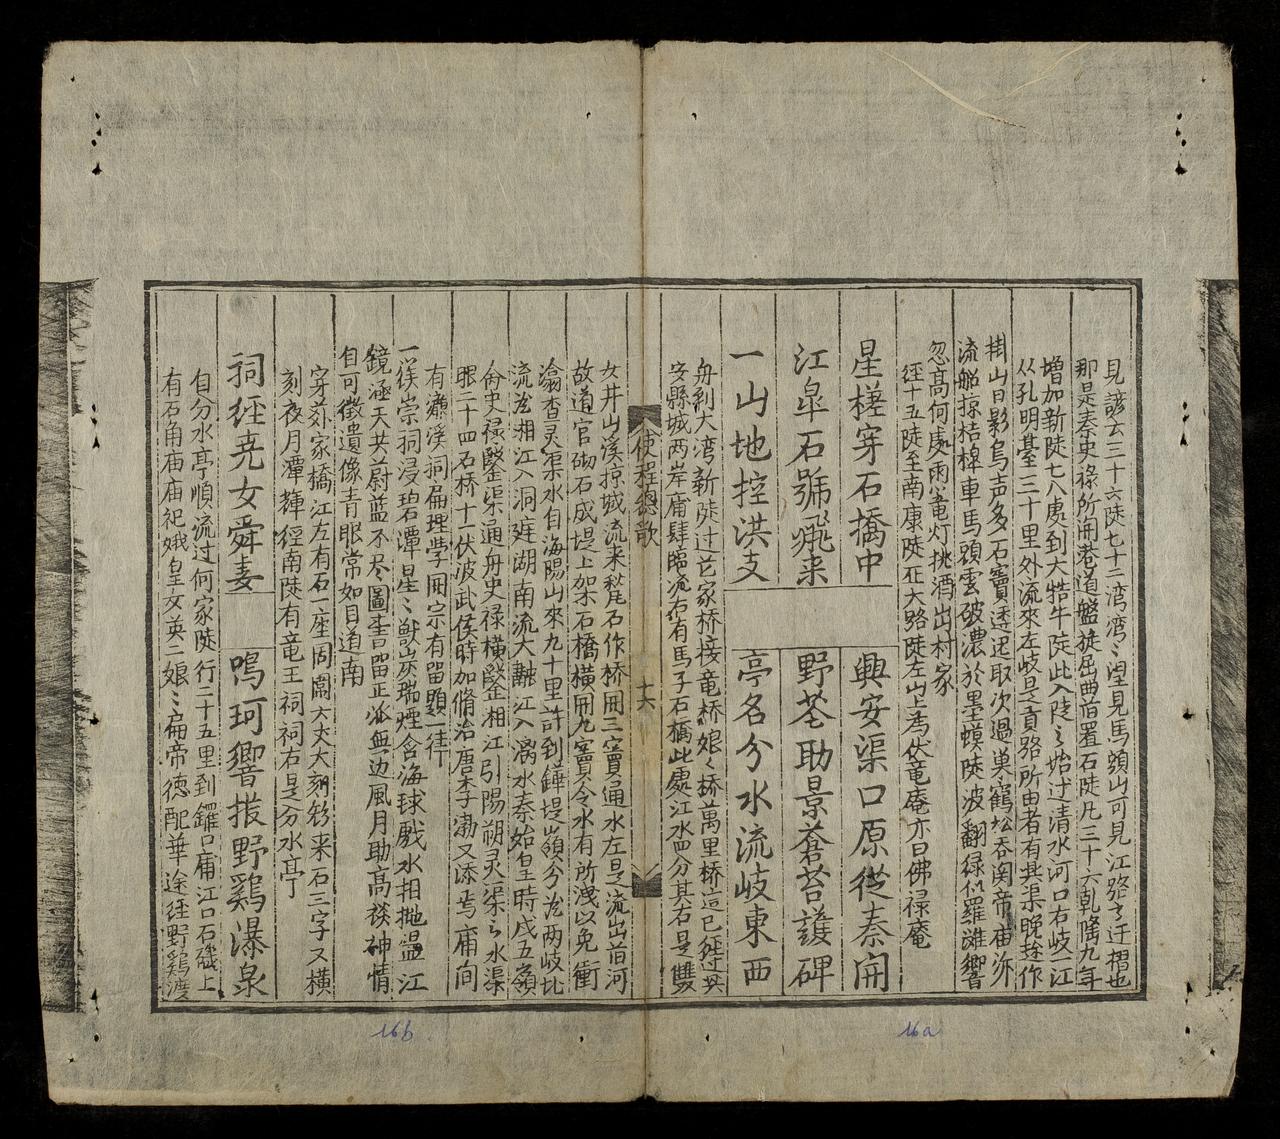 見諺云三十六陡七十二湾湾〻望見馬頭山可見江路之迂摺也
那是秦史禄所開巷道盤旋屈曲首置石陡凡三十六乾隆九年
増加新陡七八處到大牿牛陡此入陡之始过清水河口右岐一江
从孔明臺三十里外流來左岐是貢路所由者有其渠晚趂作
掛山日影烏声多石竇透迟取次過巢鶴松呑関帝廟泝
流船掠桔槹車馬頭雲破濃於墨蟆陡波翻緑似羅誰響
忽高何處雨竜灯挑酒出村家
径十五陡至南康陡在大路陡左山上為伏竜庵亦曰佛禄庵
星槎穿石橋中 興安渠口原從秦開
江皐石號飛来 野苍助景蒼苔護碑
一山地控洪支 亭名分水流岐東西
舟到大湾新陡过花家桥接竜桥娘〻桥萬里桥這已経过興
安縣城两岸庯肆臨流右有馬子石橋此處江水四分其右是雙
使程總歌
十六
女井山溪掠城流来甃石作桥開三竇通水左是流出首河
故道官砌石成堤上架石橋橫開九竇令水有所洩以免衝
渝查灵渠水自海陽山來九十里許到鏵堤嶺分㳒两岐北
流㳒湘江入洞庭湖南流大融江入漓水秦始皇時戊五嶺
命史禄鑿渠通舟史禄橫鑿相江引陽朔灵渠之水渠
眼二十四石桥十一伏波武侯時加脩治唐李渤又添焉庯间
有濂溪祠扁理學開宗有留題一律
一簇崇祠浸碧潭星〻獣炭瑞煙含海球戲水相拋温江
鏡涵天共蔚蓝不尽圖書留正派無边風月助高棪神情
自可徵遺像青眼常如目道南
穿苏家橋江左有石一座周圍六丈大刻飛来石三字又橫
刻夜月潭輝径南陡有竜王祠祠右是分水亭
祠经尭女舜妻 鳴珂響拔野鷄瀑泉
自分水亭順流过何家陡行二十五里到鑼口庯江口石磯上
有石角庙庙祀娥皇女英二娘〻扁帝徳配華途径野鷄渡
16b
16a